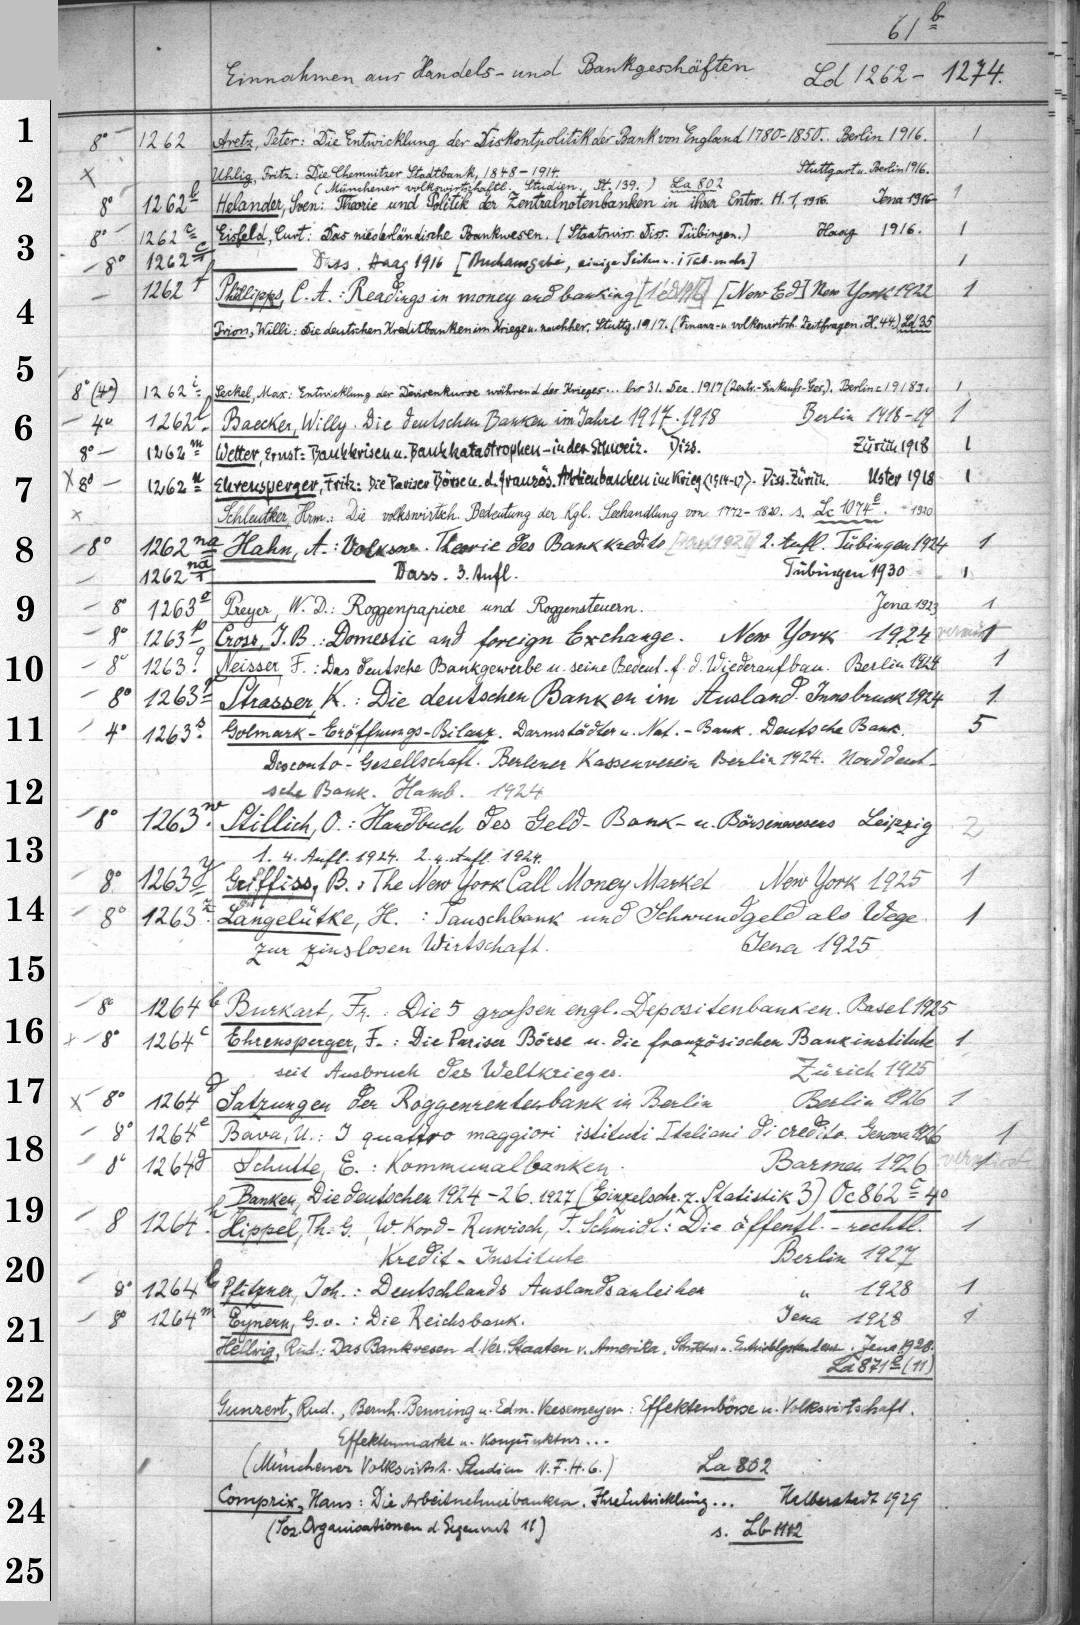 61 b
Einnahmen aus Handels- und Bankgeschäften Ld 1262 - 1274.
1
8° 1262 Aretz, Peter: Die Entwicklung der Diskontpolitik der Bank von England 1780-1850. Berlin 1916. 1
Uhlig, Fritz: Die Chemnitzer Stadtbank, 1848-1914. Stuttgart u. Berlin 1916.
2
(Münchener volkswirtschaftl. Studien, St. 139.) La 802
8° 1262 b Helander, Sven: Theorie und Politik der Zentralnotenbanken in ihrer Entw. H. 1, 1916. Jena 1916 1
3
8° 1262 c Eisfeld, Curt: Das niederländische Bankwesen. (Staatswiss. Diss. Tübingen.) Haag 1916. 1
8° 1262 c/1 Dass. Haag 1916 [Buchausgabe, einige Seiten u. 1 Tab. mehr] 1
1262 f Phillipps, C. A.: Readings in money and banking [New Ed] New York 1922 1
4
Prion, Willi: Die deutschen Kreditbanken im Kriege u. nachher. Stuttg. 1917. (Finanz- u. volkswirtsch. Zeitfragen. H. 44) Ld 35
5
8° (4°) 1262 i Seckel, Max: Entwicklung der Devisenkurse während des Krieges... bis 31. Dez. 1917 (Zentr.-Einkaufs-Ges.). Berlin 1918. 1
6
4° 1262 l Baecker, Willy. Die deutschen Banken im Jahre 1917. 1918 Berlin 1918-19 1
8° 1262 m Wetter, Ernst: Bankkrisen u. Bankkatastrophen in der Schweiz. Diss. Zürich 1918 1
7
x 8° 1262 n Ehrensperger, Fritz: Die Pariser Börse u. d. französ. Aktienbanken im Krieg (1914-17). Diss. Zürich. Uster 1918 1
x Schleutker, Hrm.: Die volkswirtsch. Bedeutung der Kgl. Seehandlung von 1772-1820. s. Lc 1074 e. 1920
8
8° 1262 na Hahn, A.: Volksw. Theorie des Bankkredits 2. Aufl. Tübingen 1924 1
1262 na/1 Dass. 3. Aufl. Tübingen 1930 1
9
8° 1263 o Preyer, W. D.: Roggenpapiere und Roggensteuern. Jena 1923 1
8° 1263 p Cross, I. B.: Domestic and foreign Exchange. New York 1924 1
10
8° 1263 q Neisser, F.: Das deutsche Bankgewerbe u. seine Bedeut. f. d. Wiederaufbau. Berlin 1924 1
8° 1263 r Strasser, K.: Die deutschen Banken im Ausland. Innsbruck 1924 1
11
4° 1263 s Golmark-Eröffnungs-Bilanz. Darmstädter u. Nat.-Bank. Deutsche Bank. 5
Disconto-Gesellschaft. Berliner Kassenverein Berlin 1924. Norddeut-
12
sche Bank. Hamb. 1924
8° 1263 w Stillich, O.: Handbuch des Geld- Bank- u. Börsenwesens Leipzig 2
13
1. 4. Aufl. 1924. 2. 4. Aufl. 1924.
8° 1263 y Griffiss, B.: The New York Call Money Market New York 1925 1
14
8° 1263 z Langelütke, H.: Tauschbank und Schwundgeld als Wege 1
zur zinslosen Wirtschaft. Jena 1925
15
8° 1264 b Burkart, Fr.: Die 5 großen engl. Depositenbanken. Basel 1925
16
x 8° 1264 c Ehrensperger, F.: Die Pariser Börse u. die französischen Bankinstitute 1
seit Ausbruch des Weltkrieges. Zürich 1925
17
x 8° 1264 d Satzungen der Roggenrentenbank in Berlin Berlin 1926 1
8° 1264 e Bava, U.: I quattro maggiori istituti Italiani di credito. Genova 1926 1
18
8° 1264 g Schutte, E.: Kommunalbanken. Barmen 1926 1
Banken, Die deutschen 1924-26. 1927 (Einzelschr. z. Statistik 3) Oc 862 c 4°
19
8 1264 h Hippel, Th. G., W. Kord-Ruwisch, F. Schmidt: Die öffentl.-rechtl. 1
Kredit-Institute Berlin 1927
20
8° 1264 l Pfitzner, Joh.: Deutschlands Auslandsanleihen " 1928 1
8° 1264 m Eynern, G. v.: Die Reichsbank. Jena 1928 1
21
Hellwig, Rud.: Das Bankwesen d. Ver. Staaten v. Amerika. Jena 1928.
Ld 871 (11)
22
Gunzert, Rud., Bernh. Benning u. Edm. Veesemeyer: Effektenbörse u. Volkswirtschaft.
Effektenmarkt u. Konjunktur...
23
(Münchener Volkswirtsch. Studien N. F. H. 6.) La 802
Comprix, Hans: Die Arbeitnehmerbanken. Ihre Entwicklung... Halberstadt 1929
24
(Soz. Organisationen d. Gegenwart 11) s. Lb 1102
25